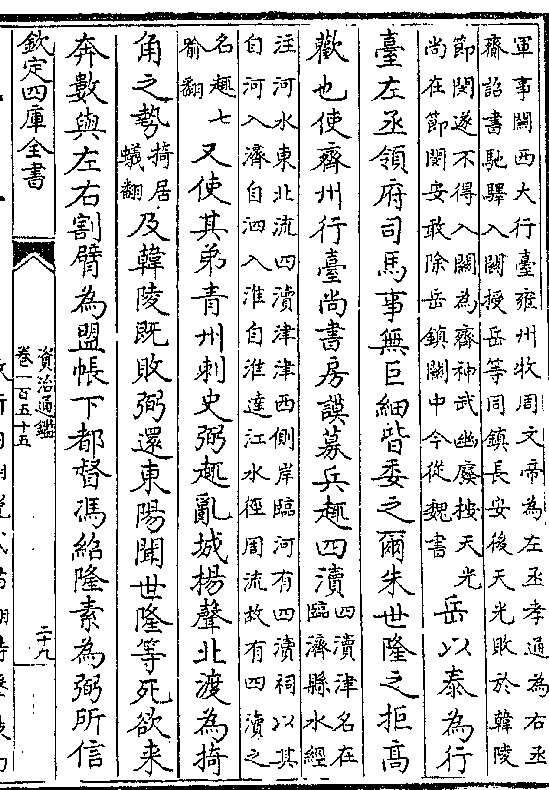 軍事關西大行臺雍州牧周文帝為左丞孝通為右丞
齎詔書馳驛入關授岳等同鎮長安後天光敗於韓陵
節閔遂不得入關為齊神武幽廢按天光
尚在節閔安敢除岳鎮關中今從魏書
岳以泰為行
臺左丞領府司馬事無巨細皆委之爾朱世隆之拒高
歡也使齊州行臺尚書房謨募兵趣四瀆
四瀆津名在
臨濟縣水經
注河水東北流四瀆津津西側岸臨河有四瀆祠以其
自河入濟自泗入淮自淮達江水徑周流故有四瀆之
名趣七
喻翻
又使其弟青州刺史弼趣亂城揚聲北渡為掎
角之勢
掎居
蟻翻
及韓陵既敗弼還東陽聞世隆等死欲来
奔數與左右割臂為盟帳下都督馮紹隆素為弼所信
欽定四庫全書
資治通鑑
卷一百五十五
二十九